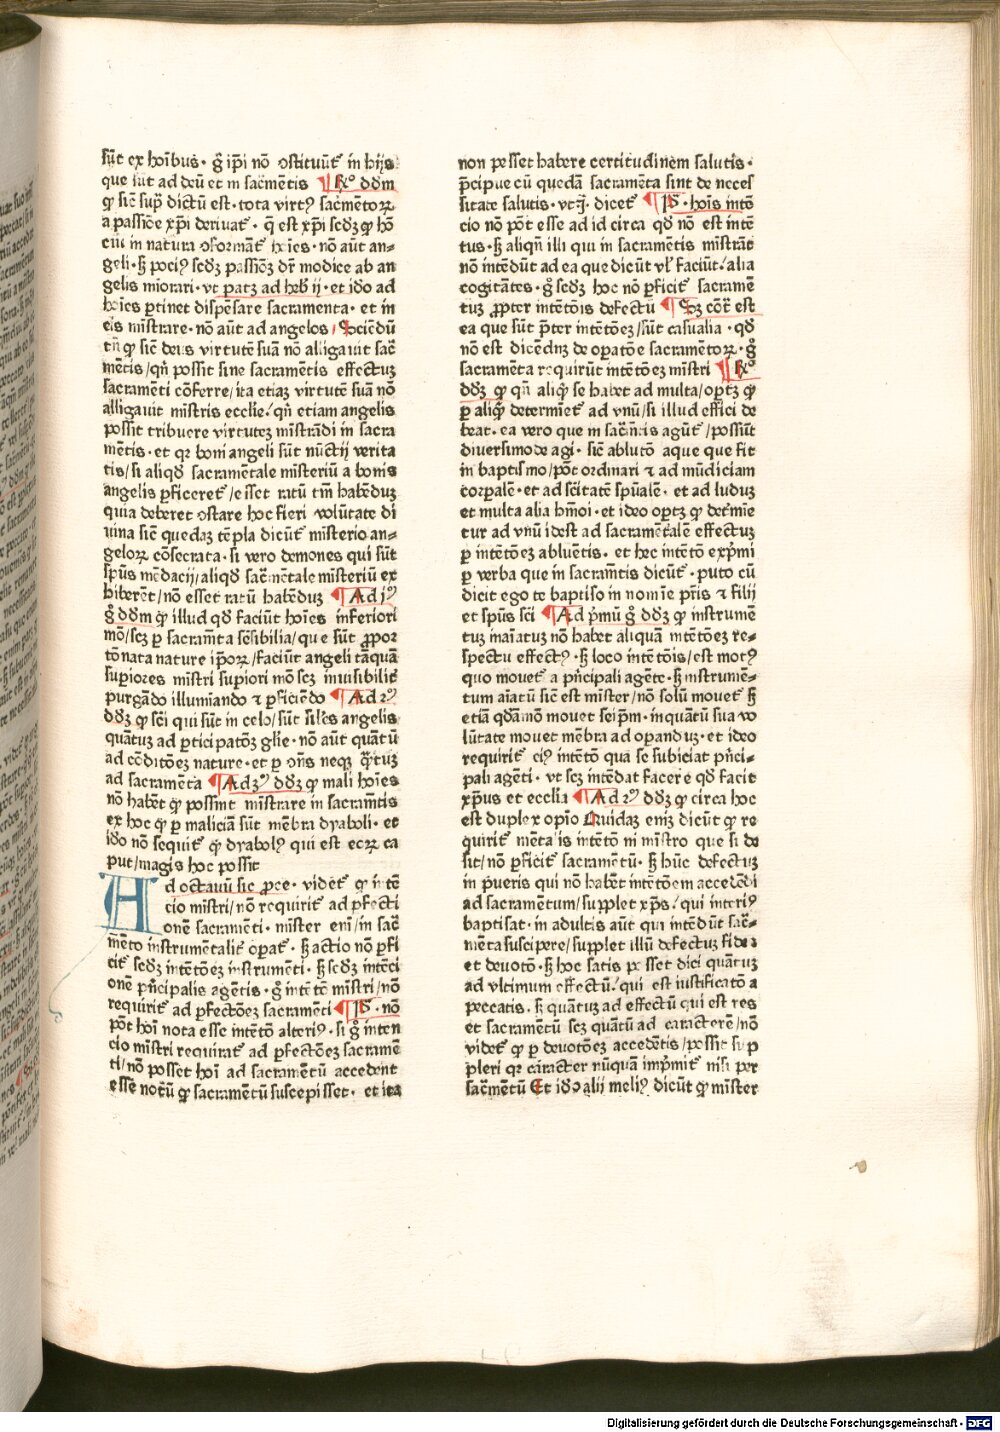 sūt ex hoībus · g̊ ip̄i nō ɔstituūt̄ in hijs
que sūt ad deū et in sac̄mētis ¶ Rº ððm
ꝙ sic̄ sup̄ dictū est · tota virtꝰ sac̄mētoꝝ
a passiōe xp̄i derivat̄ · q̄ est xp̄i scðꝫ ꝙ hō
cui in natura ɔformāt̄ hoīes · nō aūt an-
geli · sꝫ pociꝰ scðꝫ passiōeꝫ dr̄ modice ab an
gelis miorari · vt patꝫ ad heb̄ ij · et iðo ad
hoīes ꝑtinet dispēsare sacramenta · et in
eis mīstrare · nō aūt ad angelos / Sciēdū
tn̄ ꝙ sic̄ deus virtutē suā nō alligauit sac̄
mētis / qn̄ possit sine sacramētis effectuꝫ
sacramēti cōferre / ita etiaꝫ virtutē suā nō
alligauit mīstris ecclīe / qn̄ etiam angelis
possit tribuere virtuteꝫ mīstrādi in sacra
mētis · et qꝛ boni angeli sūt nūctij verita
tis / si aliqð sacramētale misteriū a bonis
angelis ꝑficeret̄ / esset ratū tm̄ habēduꝫ
quia deberet ɔstare hoc fieri volūtate di
uina sic̄ quedaꝫ tēpla dicūt̄ misterio an-
geloꝝ cōsecrata · si vero demones qui sūt
sp̄us mēdacij / aliqð sac̄mētale misteriū ex
hiberēt / nō esset ratū habēduꝫ ¶ Ad jꝰ
g̊ ðð̄m ꝙ illud qð faciūt hoīes inferiori
mō / scꝫ ꝑ sacram̄ta sēsibilia / que sūt ꝓpor
tōnata nature ip̄oꝝ / faciūt angeli tāquā
suꝑiores mīstri suꝑiori mō scꝫ inuisibilit̄
purgādo illumīando ⁊ ꝑficiēdo ¶ Ad 2ꝰ
ððꝫ ꝙ sc̄i qui sūt in celo / sūt sil̄es angelis
quātuꝫ ad ꝑticipatōꝫ gl̄ie · nō aūt quātū
ad cōditōeꝫ nature · et ꝑ ɔn̄s neqꝫ q̄tuꝫ
ad sacramēta ¶ Ad 3ꝰ ððꝫ ꝙ mali hoīes
nō habēt ꝙ possint mīstrare in sacram̄tis
ex hoc ꝙ ꝑ maliciā sūt mēbra dyaboli · et
iðo nō sequit̄ ꝙ dyabolꝰ qui est eoꝝ ca
put / magis hoc possit
Ad octauū sic ꝓce · videt̄ ꝙ intē
cio mīstri / nō requirit̄ ad ꝑfecti
onē sacramēti · mister eni / in sac̄
mēto instrumētalit̄ oꝑat̄ · sꝫ actio nō ꝑfi
cit̄ scðꝫ intētōeꝫ instrumēti · sꝫ scðꝫ intēci
onē pn̄cipalis agētis · g̊ intētō mīstri / nō
requirit̄ ad ꝑfectōeꝫ sacramēti ¶ Pˢ · nō
pōt hoī nota esse intētō alteriꝰ · si g̊ inten
cio mīstri requirat̄ ad ꝑfectōeꝫ sacramē
ti / nō posset hoī ad sacramētū accedent
esse notū ꝙ sacramētū suscepisset · et ita
non posset habere certitudinem salutis ·
p̄cipue cū quedā sacramēta sint de neces
sitate salutis · vt ȷ̄ · dicet̄ ¶ Pˢ · hoīs intē
cio nō pōt esse ad id circa qð nō est intē
tus · sꝫ aliqn̄ illi qui in sacramētis mīstrāt
nō intēdūt ad ea que dicūt vl̄ faciūt / alia
cogitātes · g̊ scðꝫ hoc nō ꝑficit̄ sacramē
tuꝫ ꝓpter intētōis defectū ¶ Sꝫ cōt̄ est
ea que sūt p̄ter intētōeꝫ / sūt casualia · qð
nō est dicēdꝫ de oꝑatōe sacramētoꝝ · g̊
sacramēta requirūt intētōeꝫ mīstri ¶ Rº
ððꝫ ꝙ qn̄ aliq̄ se habet ad multa / oꝑtꝫ ꝙ
ꝑ aliq̄ determīet̄ ad vnū / si illud effici de
beat · ea vero que in sac̄m̄tis agūt̄ / possūt
diuersimode agi · sic̄ ablutō aque que fit
in baptismo / pōt ordinari ⁊ ad mūdiciam
corꝑalē · et ad sc̄itatē sp̄ualē · et ad luduꝫ
et multa alia hm̄oi · et ideo oꝑtꝫ ꝙ det̄mīe
tur ad vnū idest ad sacramētalē effectuꝫ
ꝑ intētōeꝫ abluētis · et hec intētō exp̄mi
ꝑ verba que in sacram̄tis dicūt̄ · puto cū
dicit ego te baptiso in nomīe pr̄is ⁊ filij
et sp̄us sc̄i ¶ Ad p̄mū g̊ ððꝫ ꝙ instrumē
tuꝫ inaīatuꝫ nō habet aliquā intētōeꝫ re-
spectu effectꝰ · sꝫ loco intētōis / est motꝰ
quo mouet̄ a pn̄cipali agēte · sꝫ instrumē-
tum aīatū sic̄ est mīster / nō solū mouet̄ sꝫ
etiā qðāmō mouet seip̄m · inquātū sua vo
lūtate mouet mēbra ad oꝑanduꝫ · et ideo
requirit̄ eiꝰ intētō qua se subiciat pn̄ci-
pali agēti · vt scꝫ intēdat facere qð facit
xp̄us et ecclīa ¶ Ad 2ꝰ ððꝫ ꝙ circa hoc
est duplex opīo Quidaꝫ eniꝫ dicūt ꝙ re
quirit̄ mētalis intētō in mīstro que si de
sit / nō ꝑficit̄ sacramētū · sꝫ hūc defectuꝫ
in pueris qui nō habēt intētōem accedēdi
ad sacramentum / supplet xp̄s / qui interiꝰ
baptisat · in adultis aūt qui intēdūt sac̄-
mēta suscipere / supplet illū defectuꝫ fides
et deuotō · sꝫ hoc satis posset dici quātuꝫ
ad vltimum effectū / qui est iustificatō a
peccatis · sꝫ quātuꝫ ad effectū qui est res
et sacramētū scꝫ quātū ad caracterē / nō
videt̄ ꝙ ꝑ deuotōeꝫ accedētis / possit sup
pleri qꝛ caracter nūquā imp̄mit̄ nisi per
sac̄mētū Et iðo alij meliꝰ dicūt ꝙ mīster
Digitalisierung gefördert durch die Deutsche Forschungsgemeinschaft - DFG